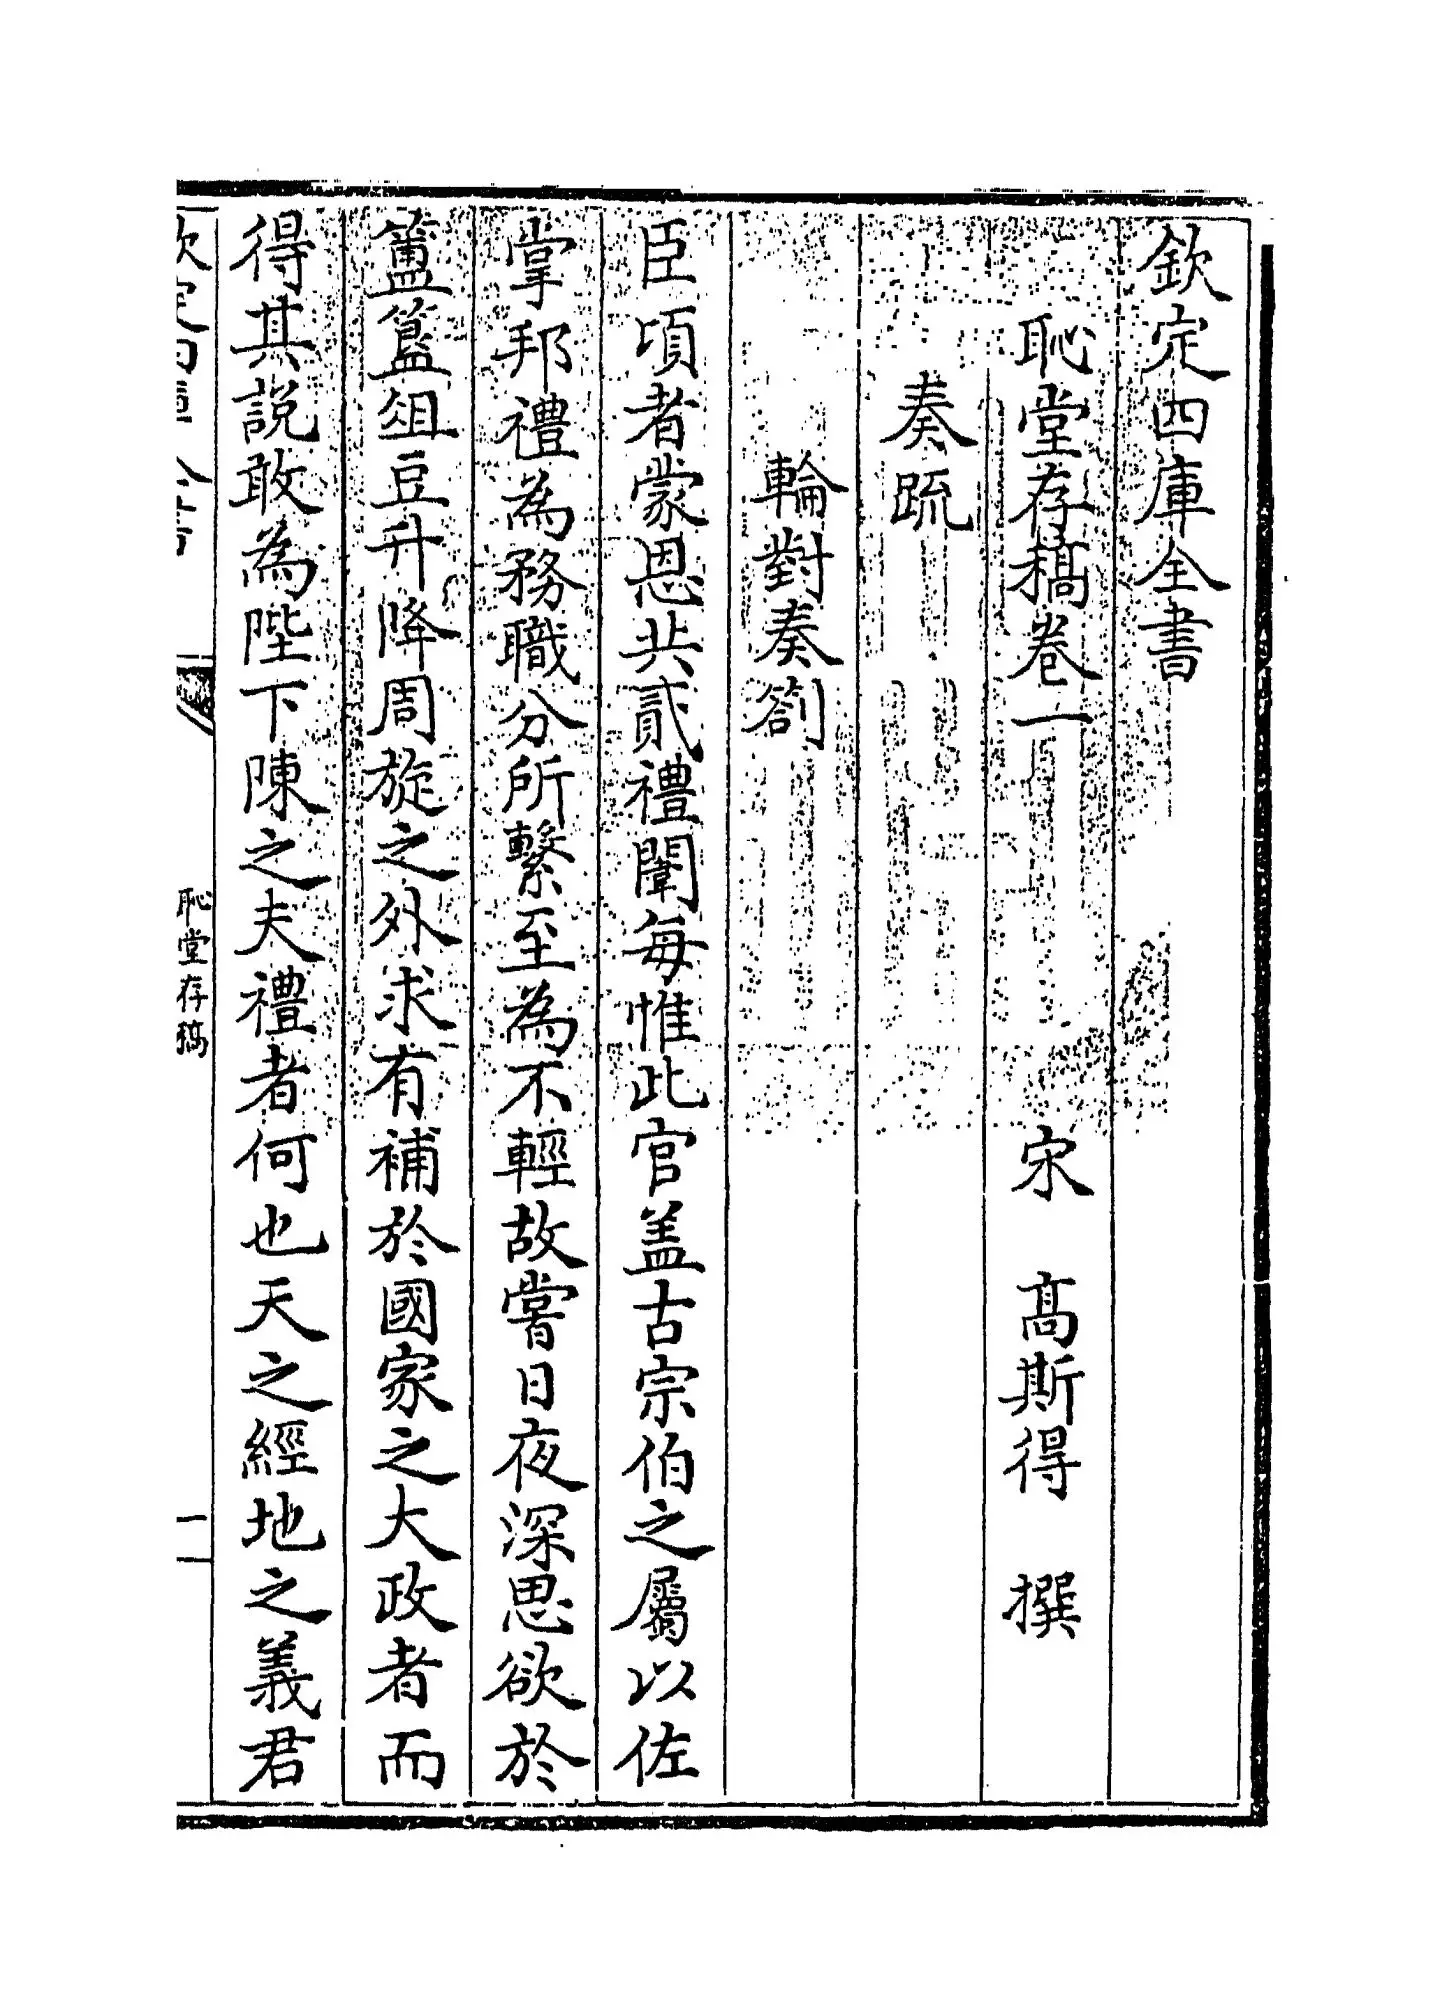 欽定四庫全書
恥堂存稿卷一　宋　高斯得　撰
奏疏
輪對奏劄
臣頃者蒙恩共貳禮闈每惟此官盖古宗伯之屬以佐
掌邦禮為務職分所繫至為不輕故嘗日夜深思欲於
簠簋俎豆升降周旋之外求有補於國家之大政者而
得其說敢為陛下陳之夫禮者何也天之經地之義君
欽定四庫全書
恥堂存稿
一